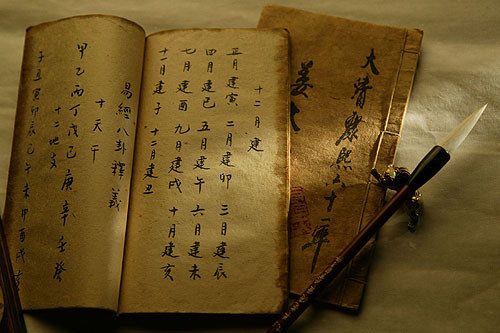 大清康熙六十一年
姜
十二月建
正月建寅 二月建卯 三月建辰
四月建巳 五月建午 六月建未
七月建酉 九月建戌 十月建亥
十一月建子 十二月建丑
易經八卦釋義
十天干
甲乙丙丁戊己庚辛壬癸
十二地支
子丑寅卯辰巳午未申酉戌亥